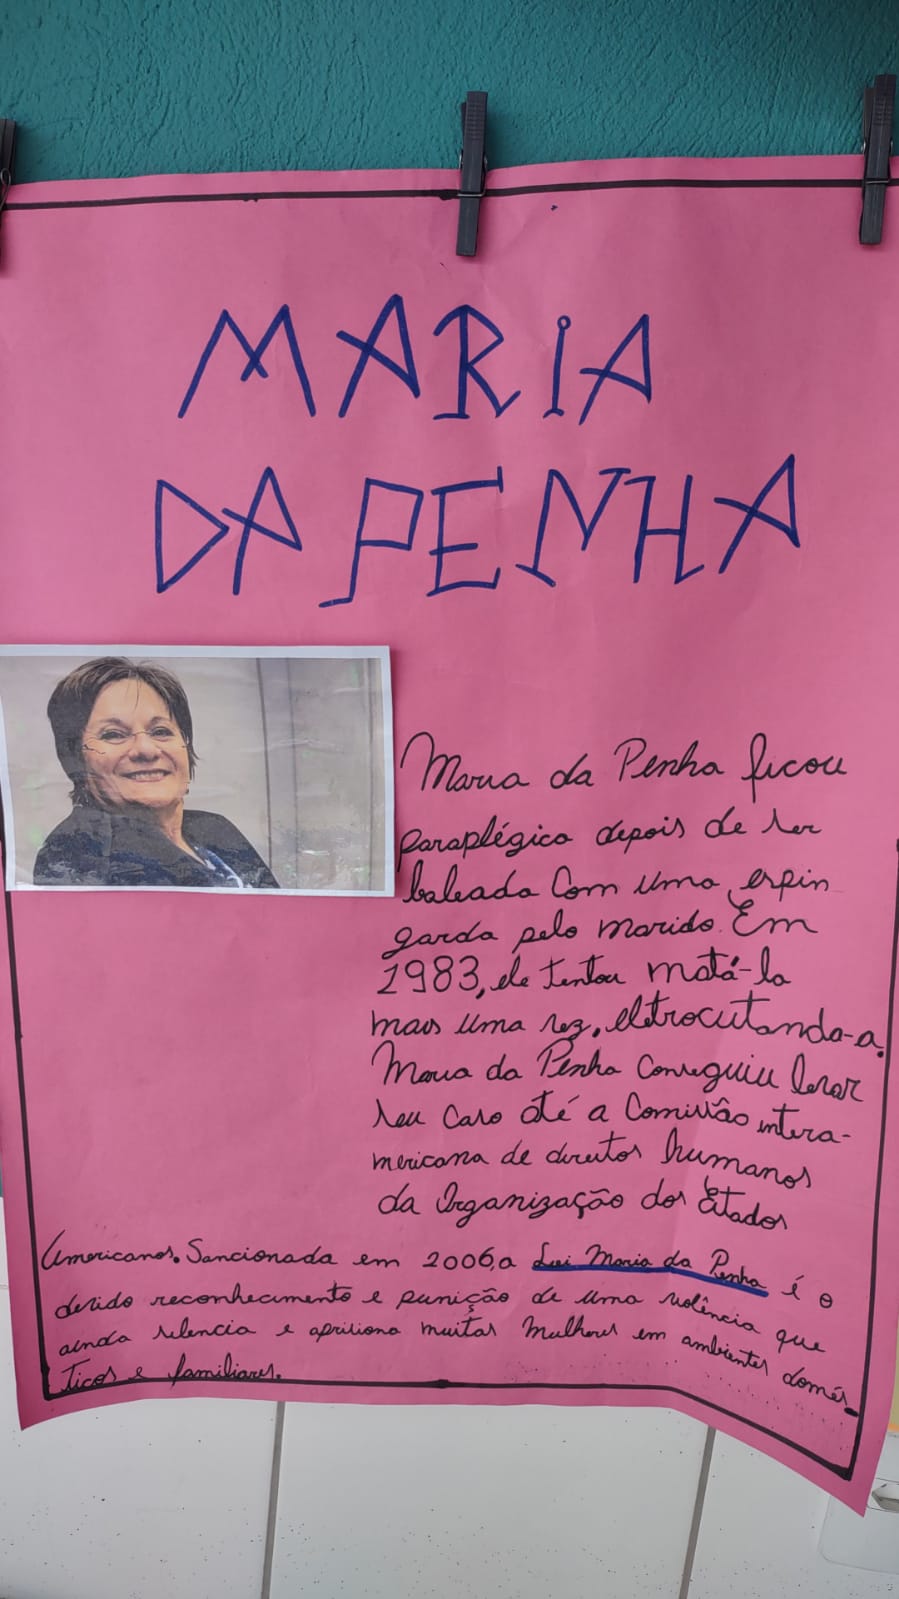 MARIA
DA PENHA
Maria da Penha ficou
paraplégica depois de ser
baleada com uma espin
garda pelo marido. Em
1983, ele tentou matá-la
mais uma vez, eletrocutando-a.
Maria da Penha conseguiu levar
seu caso até a Comissão intera-
mericana de direitos humanos
da Organização dos Estados
Americanos. Sancionada em 2006, a Lei Maria da Penha é o
devido reconhecimento e punição de uma violência que
ainda silencia e aprisiona muitas mulheres em ambientes domés-
ticos e familiares.